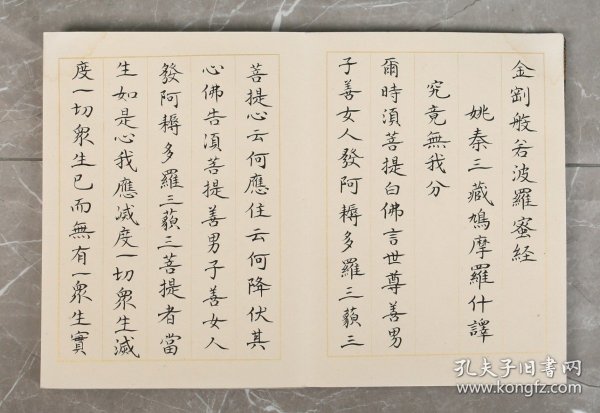 金剛般若波羅蜜经
姚秦三藏鳩摩羅什譯
究竟無我分
爾時湏菩提白佛言世尊善男
子善女人發阿耨多羅三藐三
菩提心云何應住云何降伏其
心佛告湏菩提善男子善女人
發阿耨多羅三藐三菩提者當
生如是心我應滅度一切衆生滅
度一切衆生已而無有一衆生實
孔夫子旧书网
www.kongfz.com